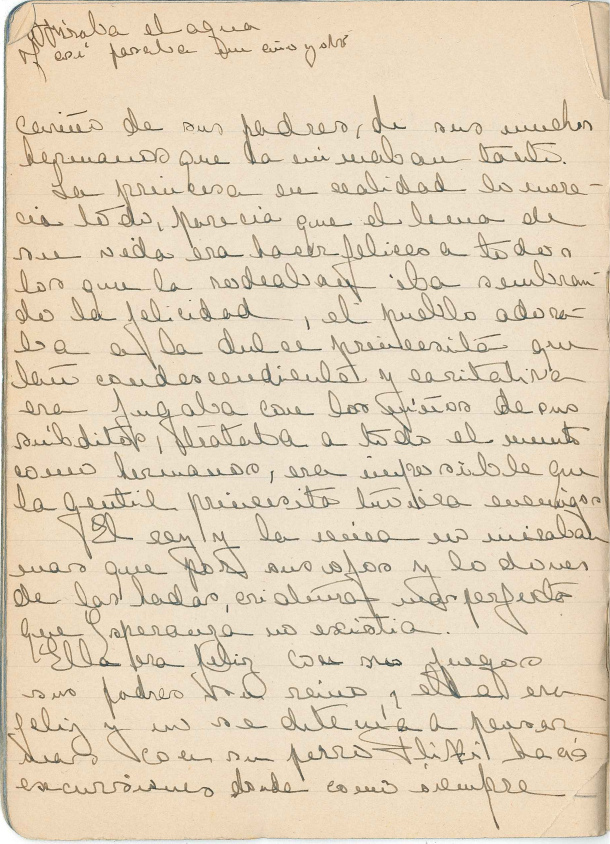 Miraba el agua
y así pasaba un año y otro
cariño de sus padres, de sus muchos
hermanos que la mimaban tanto.
La princesa en realidad lo mere-
cia todo, parecia que el lema de
su vida era hacer felices a todos
los que la rodeaban iba sembran-
do la felicidad, el pueblo adora-
ba a la dulce princesita que
tan condescendiente y caritativa
era jugaba con los niños de sus
subditos, trataba a todo el mundo
como hermanos, era imposible que
la gentil princesita tuviera enemigos
El rey y la reina no miraban
mas que por sus ojos y lo dones
de las hadas, criatura mas perfecta
que Esperanza no existia.
Ella era feliz con sus juegos
sus padres su reino, y ella era
feliz y no se detenia a pensar
mas con su perro hacia
excursiones donde como siempre